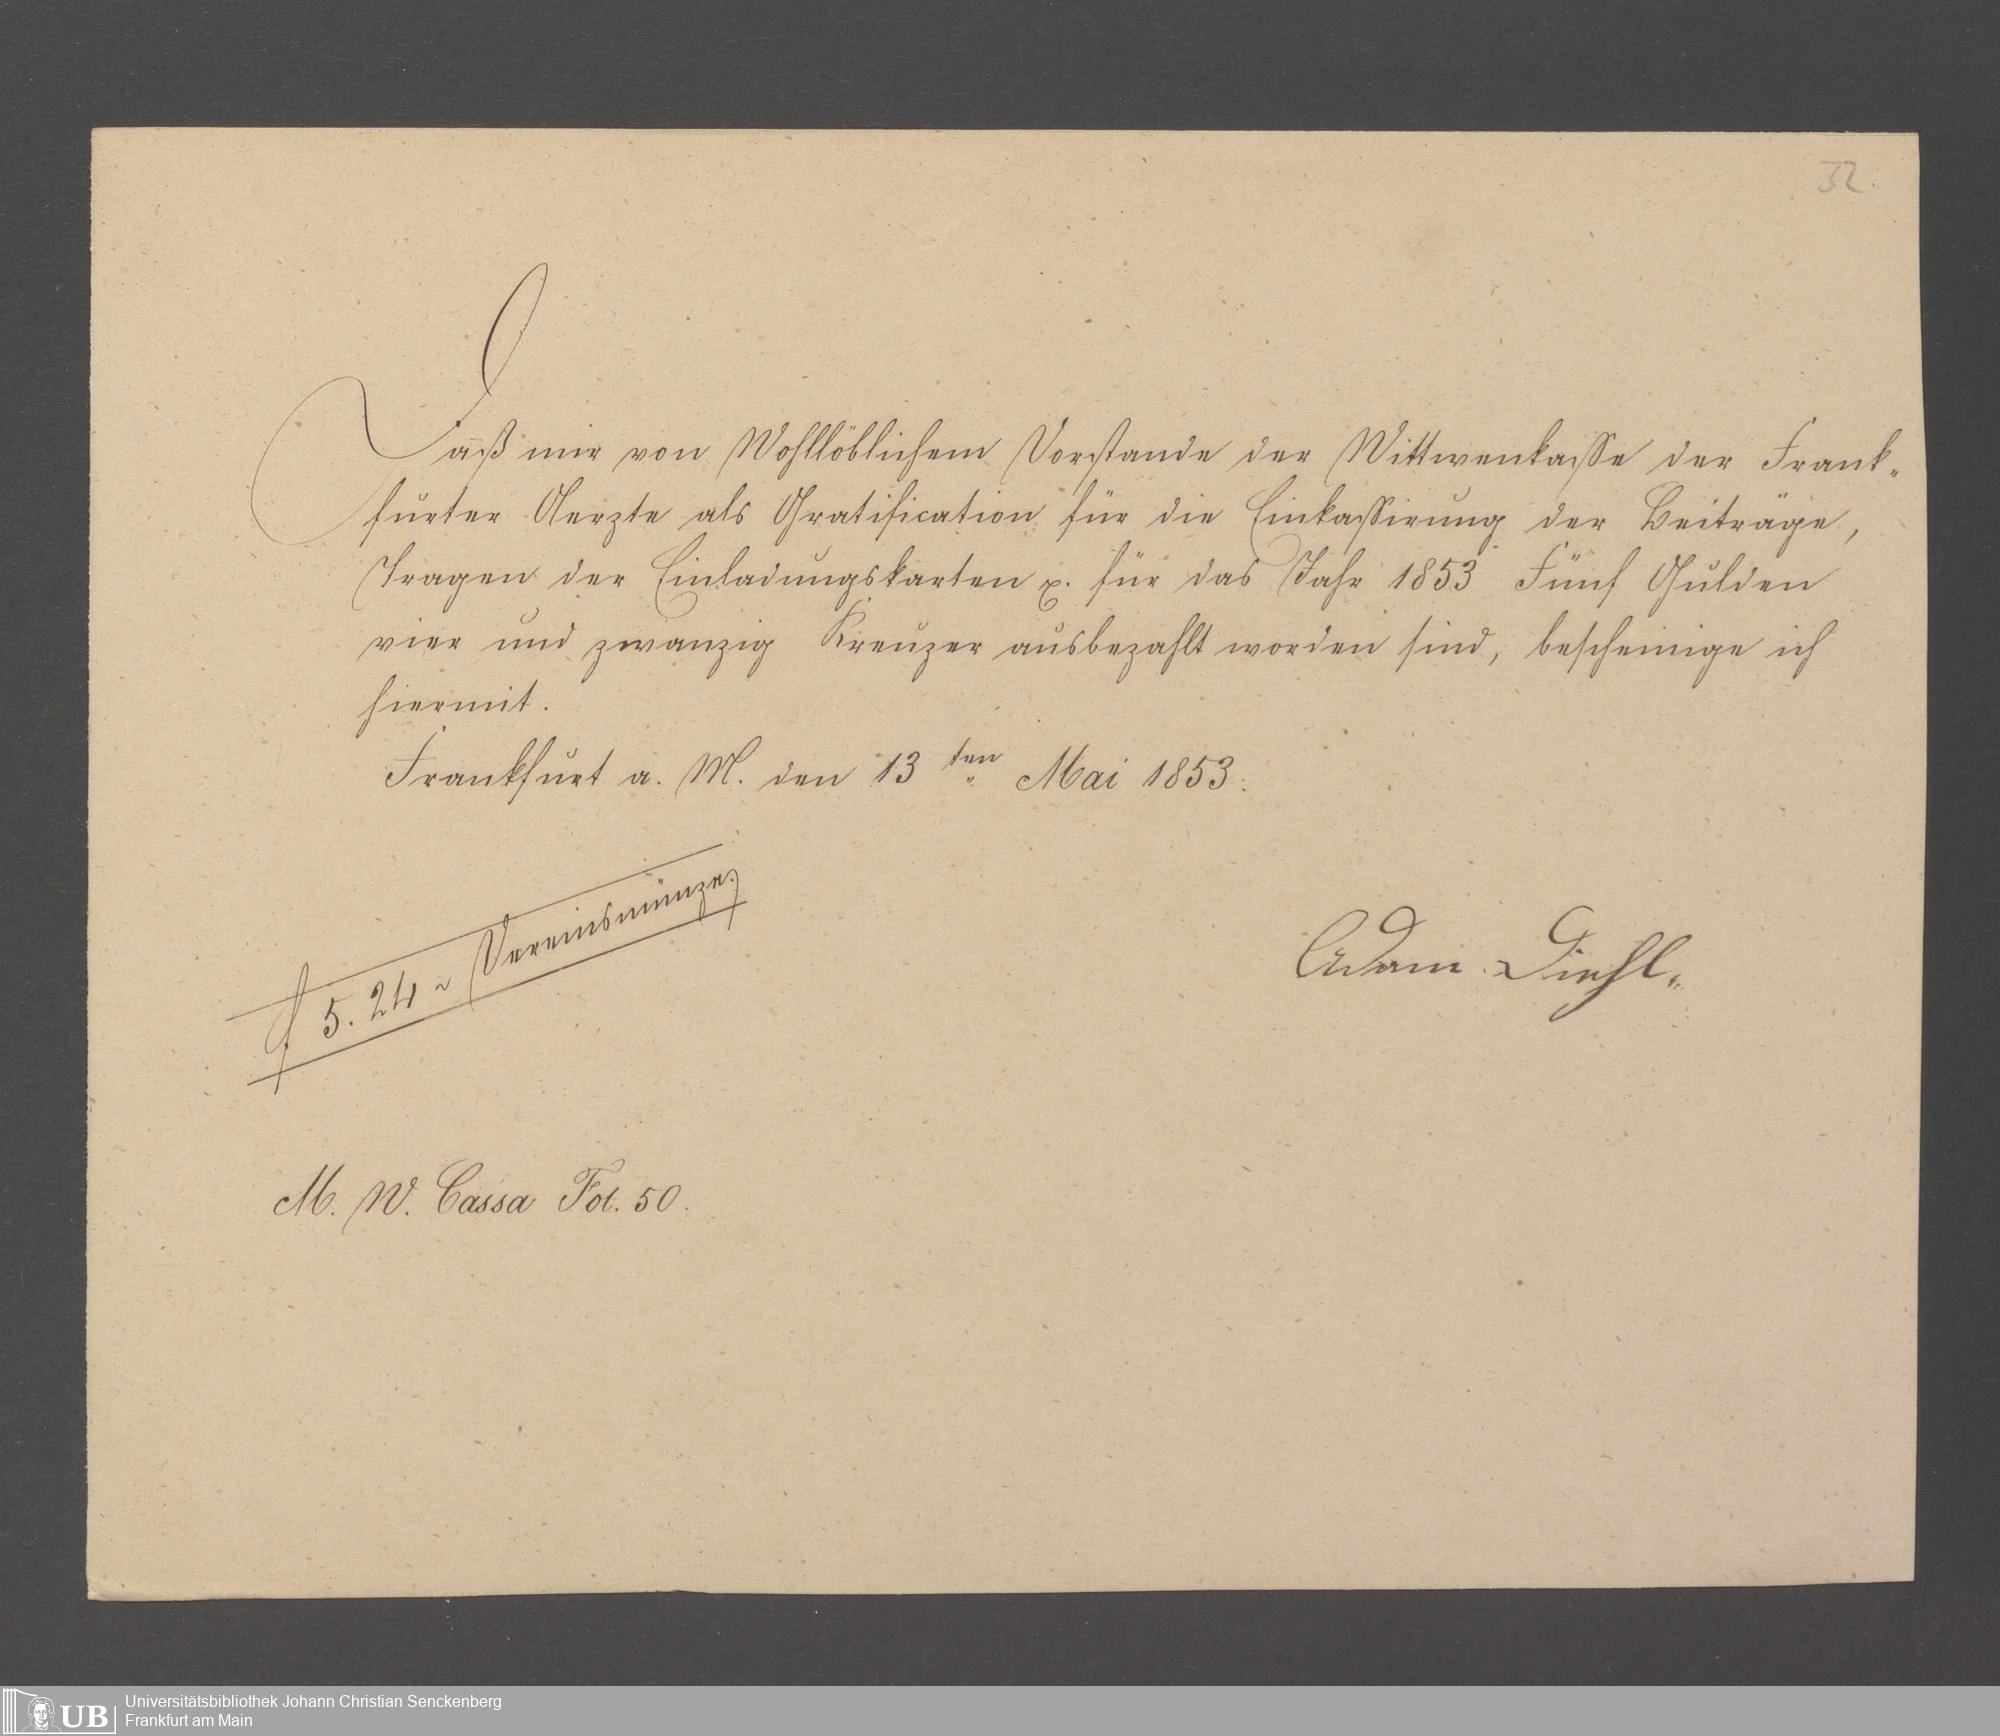 32.
Daß mir von Wohllöblichem Vorstande der Wittwenkasse der Frank-
furter Aerzte als Gratification für die Einkassirung der Beiträge,
Tragen der Einladungskarten x. für das Jahr 1853 Fünf Gulden
vier und zwanzig Kreuzer ausbezahlt worden sind, bescheinige ich
hiermit.
Frankfurt a. M. den 13ten Mai 1853.
f 5. 24 Vereinsmünze.
Adam Diehl.
M. W. Cassa Fol. 50.
UB
Universitätsbibliothek Johann Christian Senckenberg
Frankfurt am Main